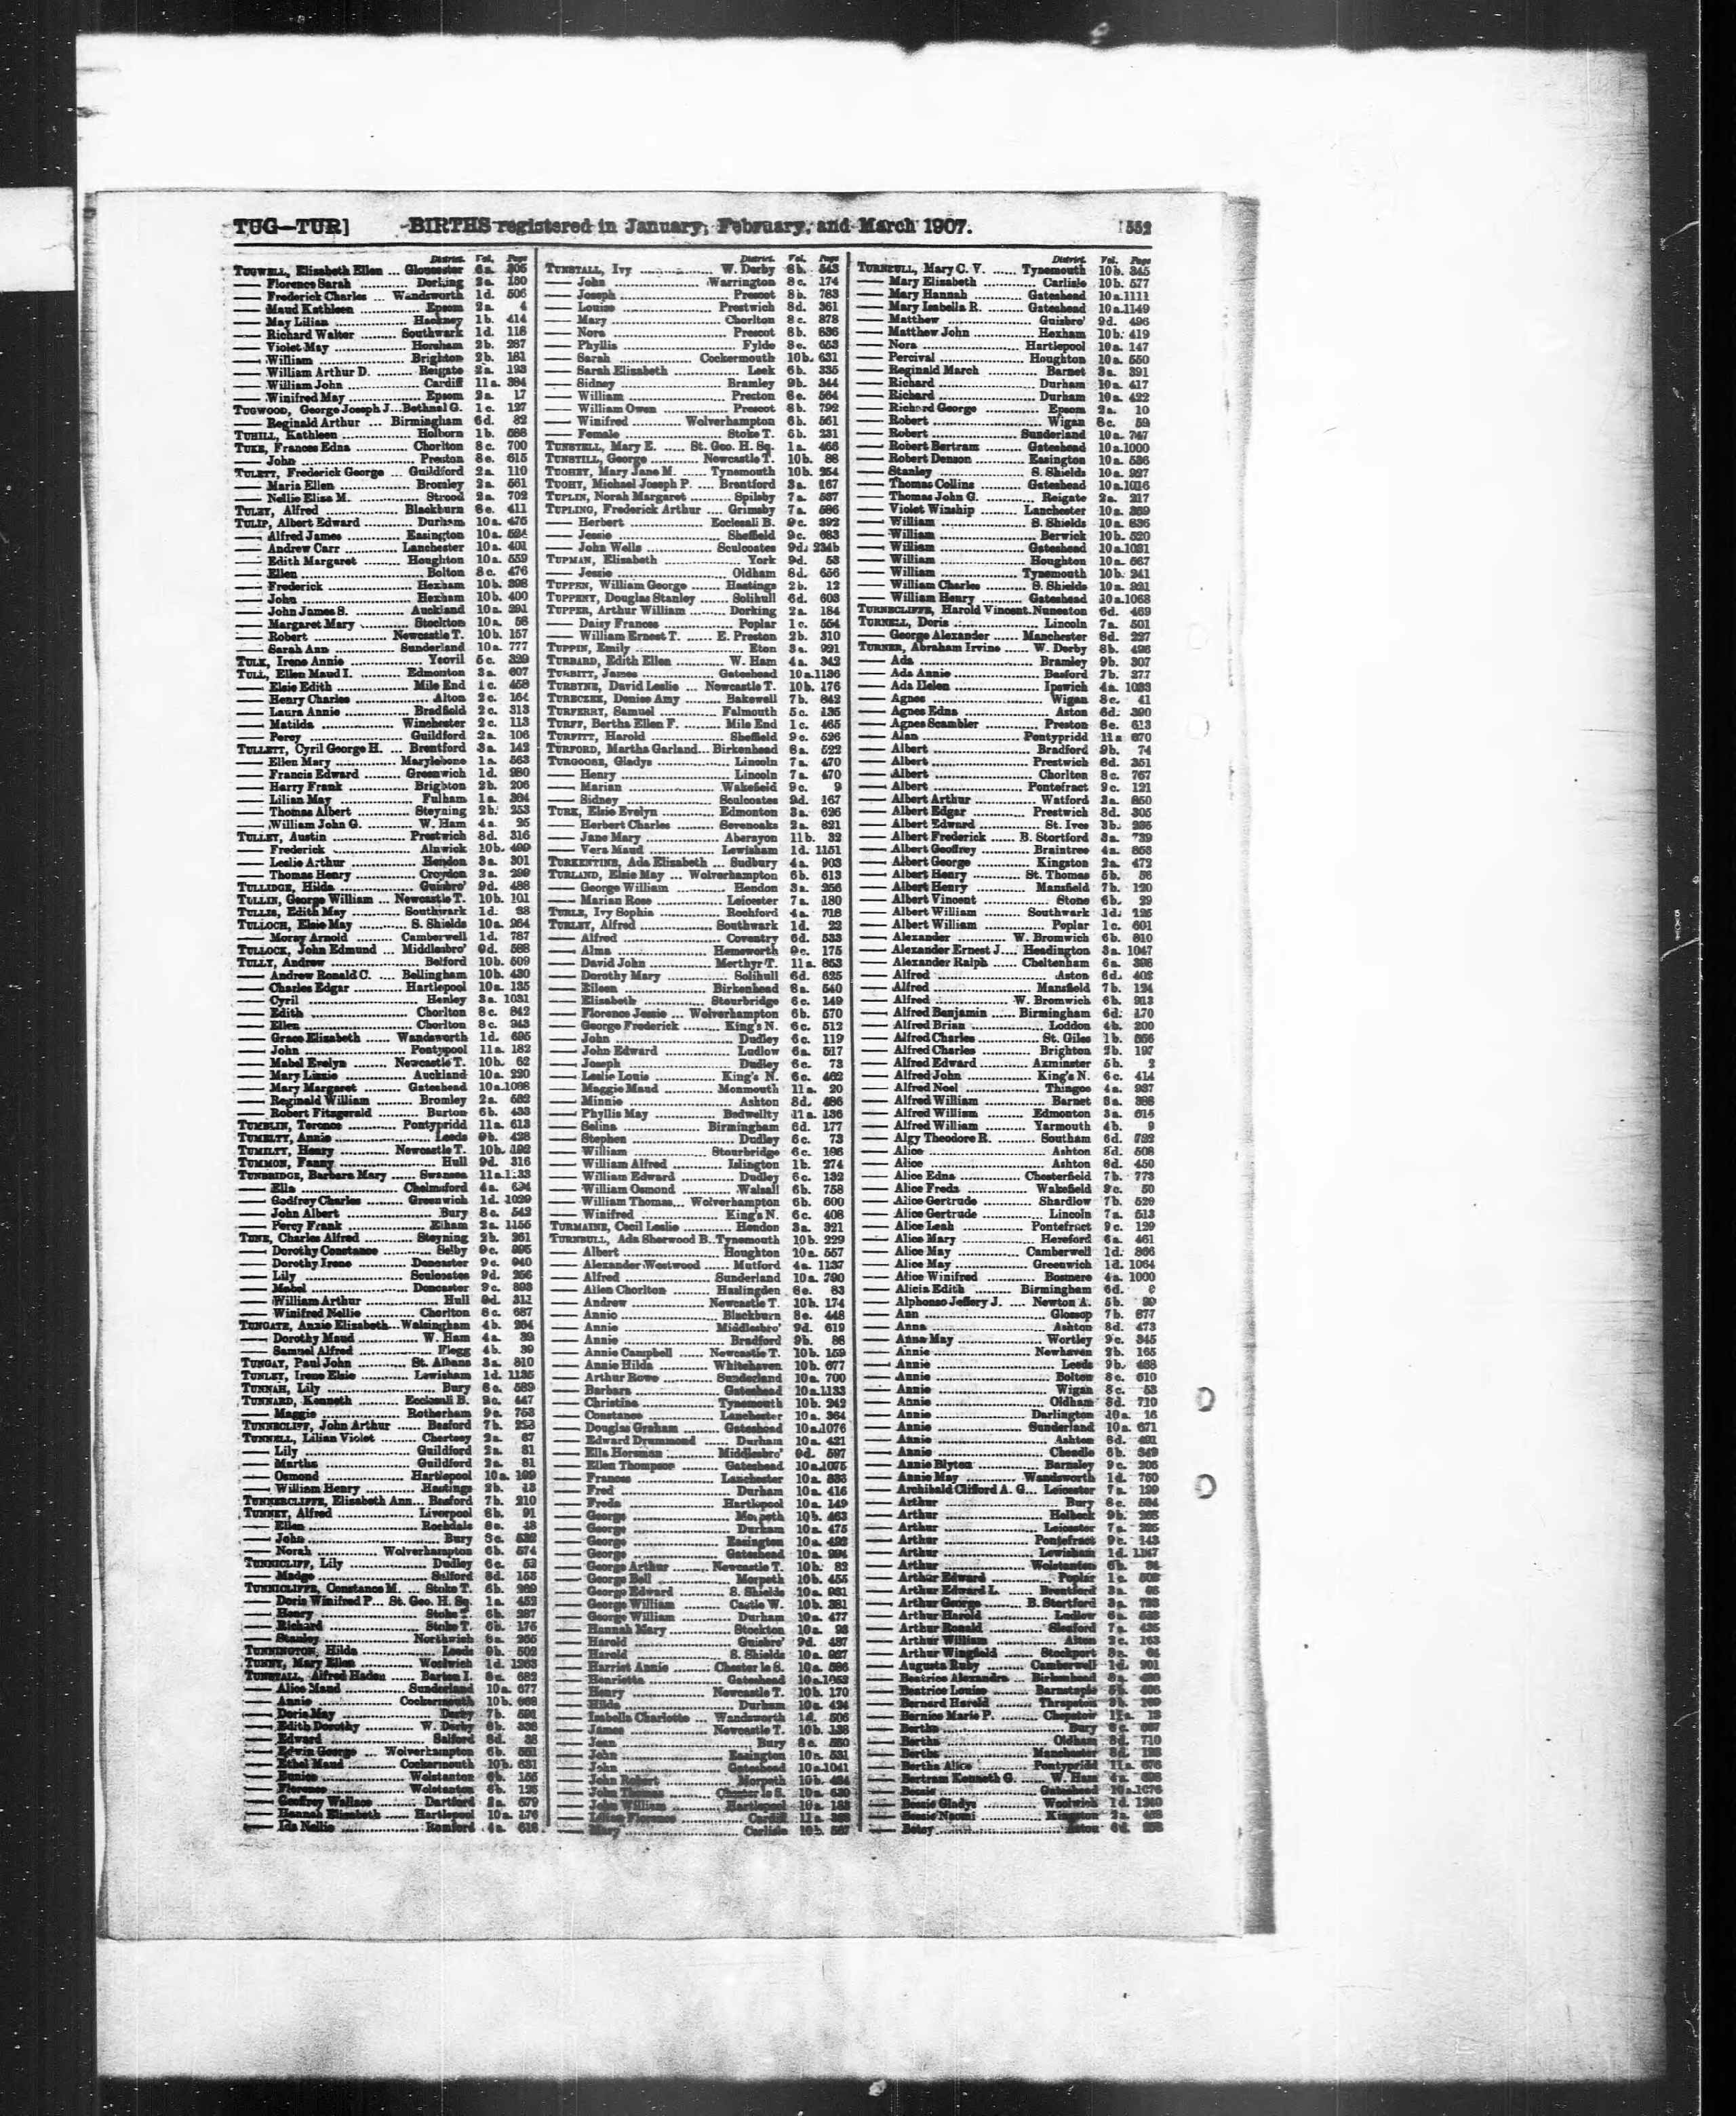 TUG—TUR] BIRTHS registered in January, February, and March 1907. 552
District. Vol. Page
TUGWELL, Elizabeth Ellen ... Gloucester 6a. 305
—— Florence Sarah ... Dorking 2a. 180
—— Frederick Charles ... Wandsworth 1d. 506
—— Maud Kathleen ... Epsom 2a. 4
—— May Lilian ... Hackney 1b. 414
—— Richard Walter ... Southwark 1d. 118
—— Violet May ... Horsham 2b. 287
—— William ... Brighton 2b. 181
—— William Arthur D. ... Reigate 2a. 193
—— William John ... Cardiff 11a. 384
—— Winifred May ... Epsom 2a. 17
TUGWOOD, George Joseph J... Bethnal G. 1c. 127
—— Reginald Arthur ... Birmingham 6d. 82
TUHILL, Kathleen ... Holborn 1b. 588
TUKE, Frances Edna ... Chorlton 8c. 700
—— John ... Preston 8e. 615
TULETT, Frederick George ... Guildford 2a. 110
—— Maria Ellen ... Bromley 2a. 561
—— Nellie Eliza M. ... Strood 2a. 702
TULEY, Alfred ... Blackburn 8e. 411
TULIP, Albert Edward ... Durham 10a. 475
—— Alfred James ... Easington 10a.
—— Andrew Carr ... Lanchester 10a. 401
—— Edith Margaret ... Houghton 10a. 559
—— Ellen ... Bolton 8c. 476
—— Frederick ... Hexham 10b. 398
—— John ... Hexham 10b. 400
—— John James S. ... Auckland 10a. 291
—— Margaret Mary ... Stockton 10a. 58
—— Robert ... Newcastle T. 10b. 157
—— Sarah Ann ... Sunderland 10a. 777
TULK, Irene Annie ... Yeovil 5c. 329
TULL, Ellen Maud I. ... Edmonton 3a. 607
—— Elsie Edith ... Mile End 1c. 458
—— Henry Charles ... Alton 2c. 164
—— Laura Annie ... Bradfield 2c. 313
—— Matilda ... Winchester 2c. 113
—— Percy ... Guildford 2a. 106
TULLETT, Cyril George H. ... Brentford 3a. 142
—— Ellen Mary ... Marylebone 1a. 563
—— Francis Edward ... Greenwich 1d. 980
—— Harry Frank ... Brighton 2b. 206
—— Lilian May ... Fulham 1a. 384
—— Thomas Albert ... Steyning 2b. 253
—— William John G. ... W. Ham 4a. 25
TULLEY, Austin ... Prestwich 8d. 316
—— Frederick ... Alnwick 10b. 499
—— Leslie Arthur ... Hendon 3a. 301
—— Thomas Henry ... Croydon 2a. 299
TULLIDGE, Hilda ... Guisbro' 9d. 488
TULLIN, George William ... Newcastle T. 10b. 101
TULLIS, Edith May ... Southwark 1d. 38
TULLOCH, Elsie May ... S. Shields 10a. 964
—— Moray Arnold ... Camberwell 1d. 787
TULLOCK, John Edmund ... Middlesbro' 9d. 588
TULLY, Andrew ... Belford 10b. 509
—— Andrew Ronald C. ... Bellingham 10b. 430
—— Charles Edgar ... Hartlepool 10a. 135
—— Cyril ... Henley 3a. 1031
—— Edith ... Chorlton 8c. 842
—— Ellen ... Chorlton 8c. 943
—— Grace Elizabeth ... Wandsworth 1d. 695
—— John ... Pontypool 11a. 182
—— Mabel Evelyn ... Newcastle T. 10b. 62
—— Mary Lizzie ... Auckland 10a. 220
—— Mary Margaret ... Gateshead 10a.1068
—— Reginald William ... Bromley 2a. 582
—— Robert Fitzgerald ... Burton 6b. 433
TUMBLIN, Terence ... Pontypridd 11a. 613
TUMELTY, Annie ... Leeds 9b. 428
TUMILTY, Henry ... Newcastle T. 10b. 192
TUMMON, Fanny ... Hull 9d. 316
TUNBRIDGE, Barbara Mary ... Swansea 11a.
—— Ella ... Chelmsford 4a.
—— Godfrey Charles ... Greenwich 1d. 1029
—— John Albert ... Bury 8c. 542
—— Percy Frank ... Elham 2a. 1155
TUNE, Charles Alfred ... Steyning 2b. 261
—— Dorothy Constance ... Selby 9c. 995
—— Dorothy Irene ... Doncaster 9c. 940
—— Lily ... Sculcoates 9d. 256
—— Mabel ... Doncaster 9c. 893
—— William Arthur ... Hull 9d. 312
—— Winifred Nellie ... Chorlton 8c. 687
TUNGATE, Annie Elizabeth... Walsingham 4b. 264
—— Dorothy Maud ... W. Ham 4a. 39
—— Samuel Alfred ... Flegg 4b. 39
TUNGAY, Paul John ... St. Albans 3a. 810
TUNLEY, Irene Elsie ... Lewisham 1d. 1135
TUNNAH, Lily ... Bury 8c. 589
TUNNARD, Kenneth ... Ecclesall B. 9c. 447
—— Maggie ... Rotherham 9c. 753
TUNNECLIFF, John Arthur ... Basford 7b. 223
TUNNELL, Lilian Violet ... Chertsey 2a. 67
—— Lily ... Guildford 2a. 81
—— Martha ... Guildford 2a. 81
—— Osmond ... Hartlepool 10a. 109
—— William Henry ... Hastings 2b. 13
TUNNERCLIFFE, Elizabeth Ann... Basford 7b. 210
TUNNEY, Alfred ... Liverpool 8b. 91
—— Ellen ... Rochdale 8e.
—— John ... Bury 8c. 532
—— Norah ... Wolverhampton 6b. 574
TUNNICLIFF, Lily ... Dudley 6c. 52
—— Madge ... Salford 8d. 153
TUNNICLIFFE, Constance M. ... Stoke T. 6b. 269
—— Doris Winifred P... St. Geo. H. Sq. 1a. 452
—— Henry ... Stoke T. 6b. 287
—— Richard ... Stoke T. 6b. 175
—— Stanley ... Northwich 8a. 255
TUNNINGTON, Hilda ... Leeds 9b. 502
TUNNY, Mary Ellen ... Woolwich 1d. 1263
TUNSTALL, Alfred Haden ... Barton I. 8c. 682
—— Alice Maud ... Sunderland 10a. 677
—— Annie ... Cockermouth 10b. 668
—— Doris May ... Derby 7b. 591
—— Edith Dorothy ... W. Derby 8b. 336
—— Edward ... Salford 8d. 38
—— Edwin George ... Wolverhampton 6b. 561
—— Ethel Maud ... Cockermouth 10b. 631
—— Eunice ... Wolstanton 6b. 155
—— Florence ... Wolstanton 6b. 125
—— Geoffrey Wallace ... Dartford 2a. 679
—— Hannah Elizabeth ... Hartlepool 10a. 176
—— Ida Nellie ... Romford 4a. 618
District. Vol. Page
TUNSTALL, Ivy ... W. Derby 8b. 543
—— John ... Warrington 8c. 174
—— Joseph ... Prescot 8b. 783
—— Louise ... Prestwich 8d. 361
—— Mary ... Chorlton 8c. 878
—— Nora ... Prescot 8b. 836
—— Phyllis ... Fylde 8e. 653
—— Sarah ... Cockermouth 10b. 631
—— Sarah Elizabeth ... Leek 6b. 335
—— Sidney ... Bramley 9b. 344
—— William ... Preston 8e. 564
—— William Owen ... Prescot 8b. 792
—— Winifred ... Wolverhampton 6b. 561
—— Female ... Stoke T. 6b. 231
TUNSTELL, Mary E. ... St. Geo. H. Sq. 1a. 466
TUNSTILL, George ... Newcastle T. 10b. 88
TUOHEY, Mary Jane M. ... Tynemouth 10b. 254
TUOHY, Michael Joseph P. ... Brentford 3a. 167
TUPLIN, Norah Margaret ... Spilsby 7a. 587
TUPLING, Frederick Arthur ... Grimsby 7a. 586
—— Herbert ... Ecclesall B. 9c. 392
—— Jessie ... Sheffield 9c. 683
—— John Wells ... Sculcoates 9d. 234b
TUPMAN, Elizabeth ... York 9d. 53
—— Jessie ... Oldham 8d. 656
TUPPEN, William George ... Hastings 2b. 12
TUPPENY, Douglas Stanley ... Solihull 6d. 603
TUPPER, Arthur William ... Dorking 2a. 184
—— Daisy Frances ... Poplar 1c. 554
—— William Ernest T. ... E. Preston 2b. 310
TUPPIN, Emily ... Eton 3a. 991
TURBARD, Edith Ellen ... W. Ham 4a. 342
TURBITT, James ... Gateshead 10a.1136
TURBYNE, David Leslie ... Newcastle T. 10b. 176
TURECZEK, Denise Amy ... Bakewell 7b. 842
TURFERRY, Samuel ... Falmouth 5c. 135
TURFF, Bertha Ellen F. ... Mile End 1c. 465
TURFITT, Harold ... Sheffield 9c. 526
TURFORD, Martha Garland... Birkenhead 8a. 522
TURGOOSE, Gladys ... Lincoln 7a. 470
—— Henry ... Lincoln 7a. 470
—— Marian ... Wakefield 9c. 9
—— Sidney ... Sculcoates 9d. 167
TURK, Elsie Evelyn ... Edmonton 3a. 626
—— Herbert Charles ... Sevenoaks 2a. 821
—— Jane Mary ... Aberayon 11b. 32
—— Vera Maud ... Lewisham 1d. 1151
TURKENTINE, Ada Elizabeth ... Sudbury 4a. 903
TURLAND, Elsie May ... Wolverhampton 6b. 613
—— George William ... Hendon 3a. 256
—— Marian Rose ... Leicester 7a. 180
TURLE, Ivy Sophia ... Rochford 4a. 718
TURLEY, Alfred ... Southwark 1d. 22
—— Alfred ... Coventry 6d. 533
—— Alma ... Hemsworth 9c. 175
—— David John ... Merthyr T. 11a. 853
—— Dorothy Mary ... Solihull 6d. 625
—— Eileen ... Birkenhead 8a. 540
—— Elizabeth ... Stourbridge 6c. 149
—— Florence Jessie ... Wolverhampton 6b. 570
—— George Frederick ... King's N. 6c. 512
—— John ... Dudley 6c. 119
—— John Edward ... Ludlow 6a. 517
—— Joseph ... Dudley 6c. 73
—— Leslie Louis ... King's N. 6c. 462
—— Maggie Maud ... Monmouth 11a. 20
—— Minnie ... Ashton 8d. 486
—— Phyllis May ... Bedwellty 11a. 136
—— Selina ... Birmingham 6d. 177
—— Stephen ... Dudley 6c. 73
—— William ... Stourbridge 6c. 196
—— William Alfred ... Islington 1b. 274
—— William Edward ... Dudley 6c. 132
—— William Osmond ... Walsall 6b. 758
—— William Thomas... Wolverhampton 6b. 600
—— Winifred ... King's N. 6c. 408
TURMAINE, Cecil Leslie ... Hendon 3a. 321
TURNBULL, Ada Sherwood B.. Tynemouth 10b. 229
—— Albert ... Houghton 10a. 557
—— Alexander Westwood ... Mutford 4a. 1137
—— Alfred ... Sunderland 10a. 790
—— Allen Chorlton ... Haslingden 8e. 83
—— Andrew ... Newcastle T. 10b. 174
—— Annie ... Blackburn 8e. 448
—— Annie ... Middlesbro' 9d. 619
—— Annie ... Bradford 9b. 86
—— Annie Campbell ... Newcastle T. 10b. 159
—— Annie Hilda ... Whitehaven 10b. 677
—— Arthur Rowe ... Sunderland 10a. 700
—— Barbara ... Gateshead 10a.1133
—— Christina ... Tynemouth 10b. 242
—— Constance ... Lanchester 10a. 364
—— Douglas Graham ... Gateshead 10a.1076
—— Edward Drummond ... Durham 10a. 421
—— Ella Horsman ... Middlesbro' 9d. 597
—— Ellen Thompson ... Gateshead 10a.1075
—— Frances ... Lanchester 10a. 333
—— Fred ... Durham 10a. 416
—— Freda ... Hartlepool 10a. 149
—— George ... Morpeth 10b. 463
—— George ... Durham 10a. 475
—— George ... Easington 10a. 492
—— George ... Gateshead 10a. 994
—— George Arthur ... Newcastle T. 10b. 82
—— George Bell ... Morpeth 10b. 455
—— George Edward ... S. Shields 10a. 931
—— George William ... Castle W. 10b. 381
—— George William ... Durham 10a. 477
—— Hannah Mary ... Stockton 10a. 93
—— Harold ... Guisbro' 9d. 487
—— Harold ... S. Shields 10a. 927
—— Harriet Annie ... Chester le S. 10a. 586
—— Henrietta ... Gateshead 10a.1052
—— Henry ... Newcastle T. 10b. 170
—— Hilda ... Durham 10a. 424
—— Isabella Charlotte ... Wandsworth 1d. 506
—— James ... Newcastle T. 10b. 138
—— Jean ... Bury 8c. 550
—— John ... Easington 10a. 531
—— John ... Gateshead 10a.1041
—— John Robert ... Morpeth 10b. 464
—— John Thomas ... Chester le S. 10a. 630
—— John William ... Hartlepool 10a. 183
—— Lilian Florence ... Cardiff 11a.
—— Mary ... Carlisle 10b. 567
District. Vol. Page
TURNBULL, Mary C. V. ... Tynemouth 10b. 345
—— Mary Elizabeth ... Carlisle 10b. 577
—— Mary Hannah ... Gateshead 10a.1111
—— Mary Isabella R. ... Gateshead 10a.1149
—— Matthew ... Guisbro' 9d. 496
—— Matthew John ... Hexham 10b. 419
—— Nora ... Hartlepool 10a. 147
—— Percival ... Houghton 10a. 550
—— Reginald March ... Barnet 3a. 391
—— Richard ... Durham 10a. 417
—— Richard ... Durham 10a. 422
—— Richard George ... Epsom 2a. 10
—— Robert ... Wigan 8c. 59
—— Robert ... Sunderland 10a. 747
—— Robert Bertram ... Gateshead 10a.1000
—— Robert Denson ... Easington 10a. 536
—— Stanley ... S. Shields 10a. 927
—— Thomas Collins ... Gateshead 10a.1016
—— Thomas John G. ... Reigate 2a. 217
—— Violet Winship ... Lanchester 10a. 369
—— William ... S. Shields 10a. 836
—— William ... Berwick 10b. 520
—— William ... Gateshead 10a.1031
—— William ... Houghton 10a. 567
—— William ... Tynemouth 10b. 241
—— William Charles ... S. Shields 10a. 921
—— William Henry ... Gateshead 10a.1068
TURNECLIFFE, Harold Vincent. Nuneaton 6d. 469
TURNELL, Doris ... Lincoln 7a. 501
—— George Alexander ... Manchester 8d. 227
TURNER, Abraham Irvine ... W. Derby 8b. 496
—— Ada ... Bramley 9b. 307
—— Ada Annie ... Basford 7b. 277
—— Ada Helen ... Ipswich 4a. 1033
—— Agnes ... Wigan 8c. 41
—— Agnes Edna ... Aston 6d. 390
—— Agnes Scambler ... Preston 8e. 613
—— Alan ... Pontypridd 11a 670
—— Albert ... Bradford 9b. 74
—— Albert ... Prestwich 8d. 351
—— Albert ... Chorlton 8c. 767
—— Albert ... Pontefract 9c. 121
—— Albert Arthur ... Watford 3a. 850
—— Albert Edgar ... Prestwich 8d. 305
—— Albert Edward ... St. Ives 3b. 295
—— Albert Frederick ... B. Stortford 3a. 739
—— Albert Geoffrey ... Braintree 4a. 853
—— Albert George ... Kingston 2a. 472
—— Albert Henry ... St. Thomas 5b. 56
—— Albert Henry ... Mansfield 7b. 120
—— Albert Vincent ... Stone 6b. 29
—— Albert William ... Southwark 1d. 125
—— Albert William ... Poplar 1c. 601
—— Alexander ... W. Bromwich 6b. 810
—— Alexander Ernest J.... Headington 3a. 1047
—— Alexander Ralph ... Cheltenham 6a. 396
—— Alfred ... Aston 6d. 402
—— Alfred ... Mansfield 7b. 124
—— Alfred ... W. Bromwich 6b. 913
—— Alfred Benjamin ... Birmingham 6d. 170
—— Alfred Brian ... Loddon 4b. 200
—— Alfred Charles ... St. Giles 1b. 556
—— Alfred Charles ... Brighton 2b. 197
—— Alfred Edward ... Axminster 5b. 2
—— Alfred John ... King's N. 6c. 414
—— Alfred Noel ... Thingoe 4a. 937
—— Alfred William ... Barnet 3a. 388
—— Alfred William ... Edmonton 3a. 615
—— Alfred William ... Yarmouth 4b. 9
—— Algy Theodore R. ... Southam 6d. 722
—— Alice ... Ashton 8d. 508
—— Alice ... Ashton 8d. 450
—— Alice Edna ... Chesterfield 7b. 773
—— Alice Freda ... Wakefield 9c. 50
—— Alice Gertrude ... Shardlow 7b. 529
—— Alice Gertrude ... Lincoln 7a. 513
—— Alice Leah ... Pontefract 9c. 129
—— Alice Mary ... Hereford 6a. 461
—— Alice May ... Camberwell 1d. 866
—— Alice May ... Greenwich 1d. 1064
—— Alice Winifred ... Bosmere 4a. 1000
—— Alicia Edith ... Birmingham 6d.
—— Alphonso Jeffery J. ... Newton A. 5b. 90
—— Ann ... Glossop 7b. 877
—— Anna ... Ashton 8d. 473
—— Anna May ... Wortley 9c. 345
—— Annie ... Newhaven 2b. 165
—— Annie ... Leeds 9b. 488
—— Annie ... Bolton 8c. 510
—— Annie ... Wigan 8c. 53
—— Annie ... Oldham 8d. 710
—— Annie ... Darlington 10a. 16
—— Annie ... Sunderland 10a. 671
—— Annie ... Ashton 8d. 491
—— Annie ... Cheadle 6b. 349
—— Annie Blyton ... Barnsley 9c. 206
—— Annie May ... Wandsworth 1d. 750
—— Archibald Clifford A. G... Leicester 7a. 199
—— Arthur ... Bury 8c. 594
—— Arthur ... Holbeck 9b. 265
—— Arthur ... Leicester 7a. 225
—— Arthur ... Pontefract 9c. 143
—— Arthur ... Lewisham 1d. 1147
—— Arthur ... Wolstanton 6b.
—— Arthur Edward ... Poplar 1c. 508
—— Arthur Edward L. ... Brentford 3a. 66
—— Arthur George ... B. Stortford 3a. 723
—— Arthur Harold ... Ludlow 6a. 533
—— Arthur Ronald ... Sleaford 7a. 435
—— Arthur William ... Alton 2c. 163
—— Arthur Wingfield ... Stockport 8a. 64
—— Augusta Ruby ... Camberwell 1d. 901
—— Beatrice Alexandra ... Birkenhead 8a.
—— Beatrice Louise ... Barnstaple 5b.
—— Bernard Harold ... Thrapston 3b. 269
—— Bernice Marie P. ... Chepstow 11a. 13
—— Bertha ... Bury 8c. 567
—— Bertha ... Oldham 8d. 710
—— Bertha ... Manchester 8d. 198
—— Bertha Alice ... Pontypridd 11a. 676
—— Bertram Kenneth G. ... W. Ham 4a.
—— Bessie ... Gateshead 10a.1076
—— Bessie Gladys ... Woolwich 1d. 1240
—— Bessie Naomi ... Kingston 2a. 458
—— Betsy ... Aston 6d. 258